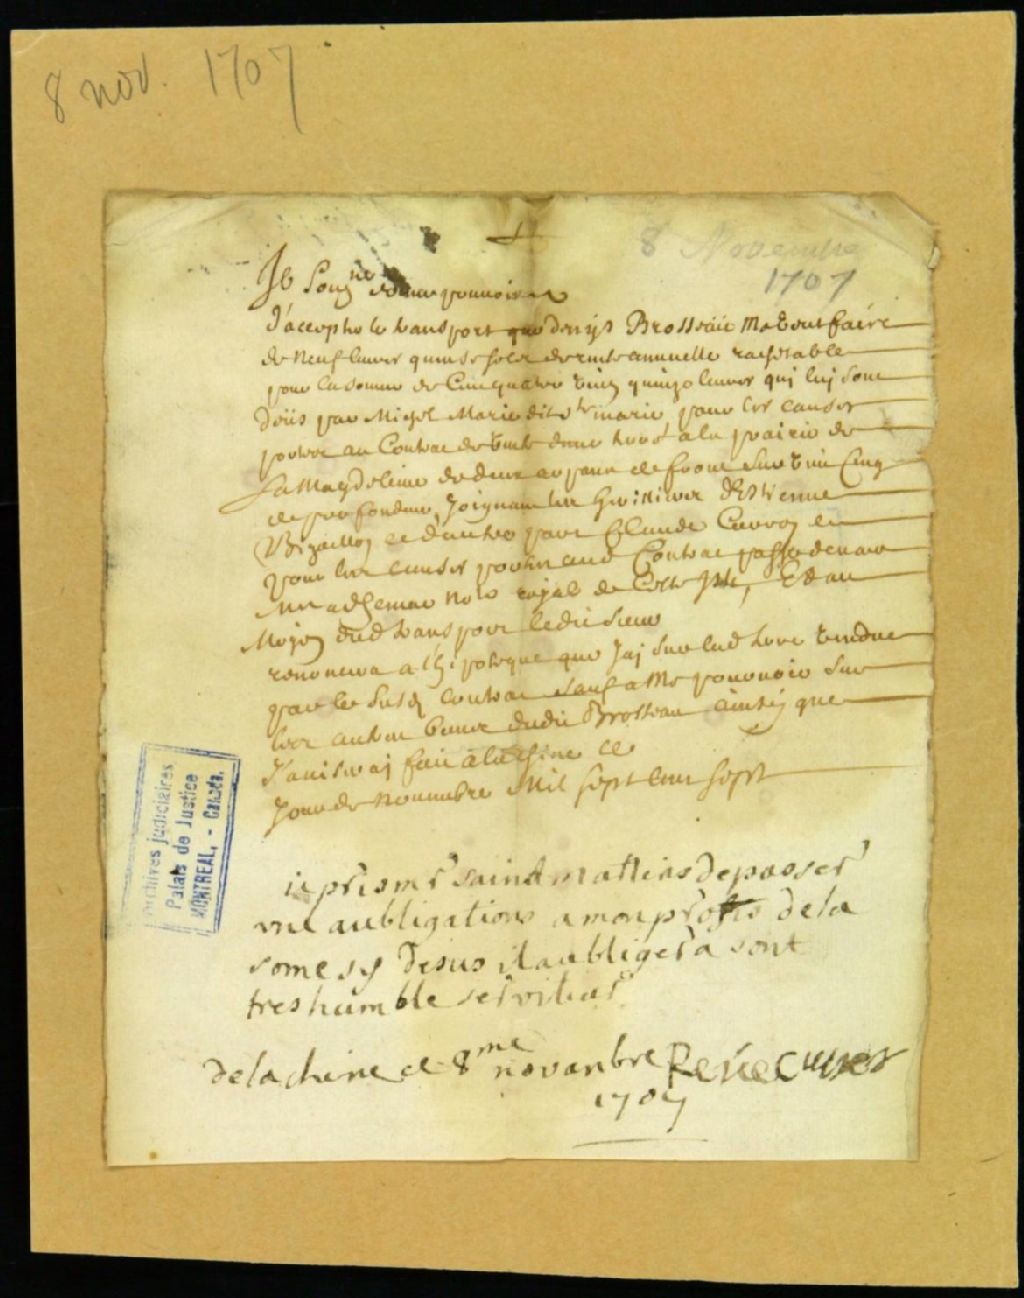 8 nov. 1707
8 Novembre
1707
Je Souz.ne donne pouuoir
J'accepte le transport que denis Brosseau Ma veut faire
de Neuf liures quinse sols de rente annuelle rachetable
pour la somme de Cinquante quinze liures qui luj sont
deüs par Migel Marie dit Ste marie pour les causes
portee au Contrac de vente d'une terre a la prairie de
La Magdeleine de deux arpans de front sur vin Cinq
de profondeur, Joignant d'Estienne
Bizaillon et d'autre part Claude Caron et
pour les causes portee aud Contrac passe deuant
Mre adhemar Nore royal de Cette Isle, Et au
Moyen dud transport ledit Sieur
renoncera a l'hipoteque que J'aj sur lad terre vendue
par le Susd Contrac sauf a Me pouruoir sur
les autres biens dudit Brosseau ainsy que
J'auiseraj fait a la Chine ce
Jour de Nouembre Mil Sept Cent Sept
ie pri smr saind mathias de passer
vne aubligations a mon profis de la
some sy desus il aubligera sont
tres humble seruitiar
de la chine ce 8me novanbre Rene Cuillerier
1707
Archives judiciaires
Palais de Justice
MONTREAL, - Canada.